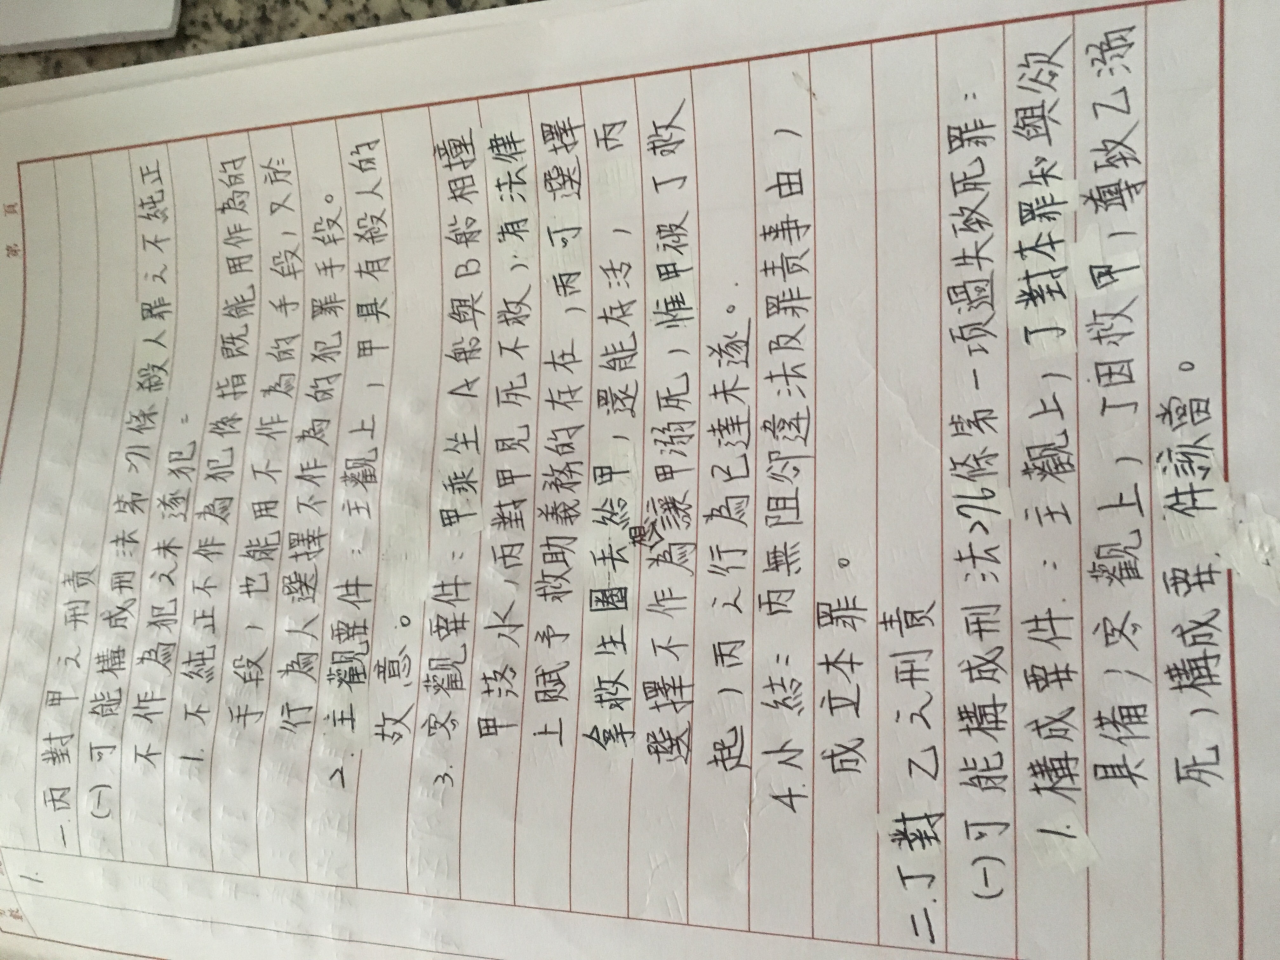 第 頁
1.
一.丙對甲之刑責
(一)可能構成刑法第271條殺人罪之不純正
不作為犯之未遂犯:
1.不純正不作為犯係指既能用作為的
手段,也能用不作為的手段,又於
行為人選擇不作為的犯罪手段。
2.主觀要件:主觀上,甲具有殺人的
故意。
3.客觀要件:甲乘坐A船與B船相撞
甲落水,丙對甲見死不救,有法律
上賦予救助義務的存在,丙可選擇
拿救生圈丟給甲,還能存活,丙
選擇不作為想讓甲溺死,惟甲被丁救
起,丙之行為已達未遂。
4.小結:丙無阻卻違法及罪責事由,
成立本罪。
二.丁對乙之刑責
(一)可能構成刑法276條第一項過失致死罪:
1.構成要件:主觀上,丁對本罪知與欲
具備,客觀上,丁因救甲,導致乙溺
死,構成要件該當。